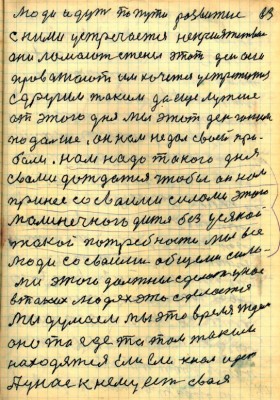 Люди идут по пути развитие 83
с ними устречается неприятности
они ломают стены этот день они
проважают им хочется устретится
с другим таким да еще лучше
от этого дня мы этот день
подальше, он нам не дал своей про-
бам. нам надо такого дня
свами дождатся чтобы он нам
принес со своими силами этого
малинечного дитя без усякой
такой потребности мы все
люди со своими общими сила-
ми этого должны сделать
в таких людях это сделается
мы думаем мы это время ждем
оно то где то там таким
находятся Ели Ели
А у нас к нему есть своя